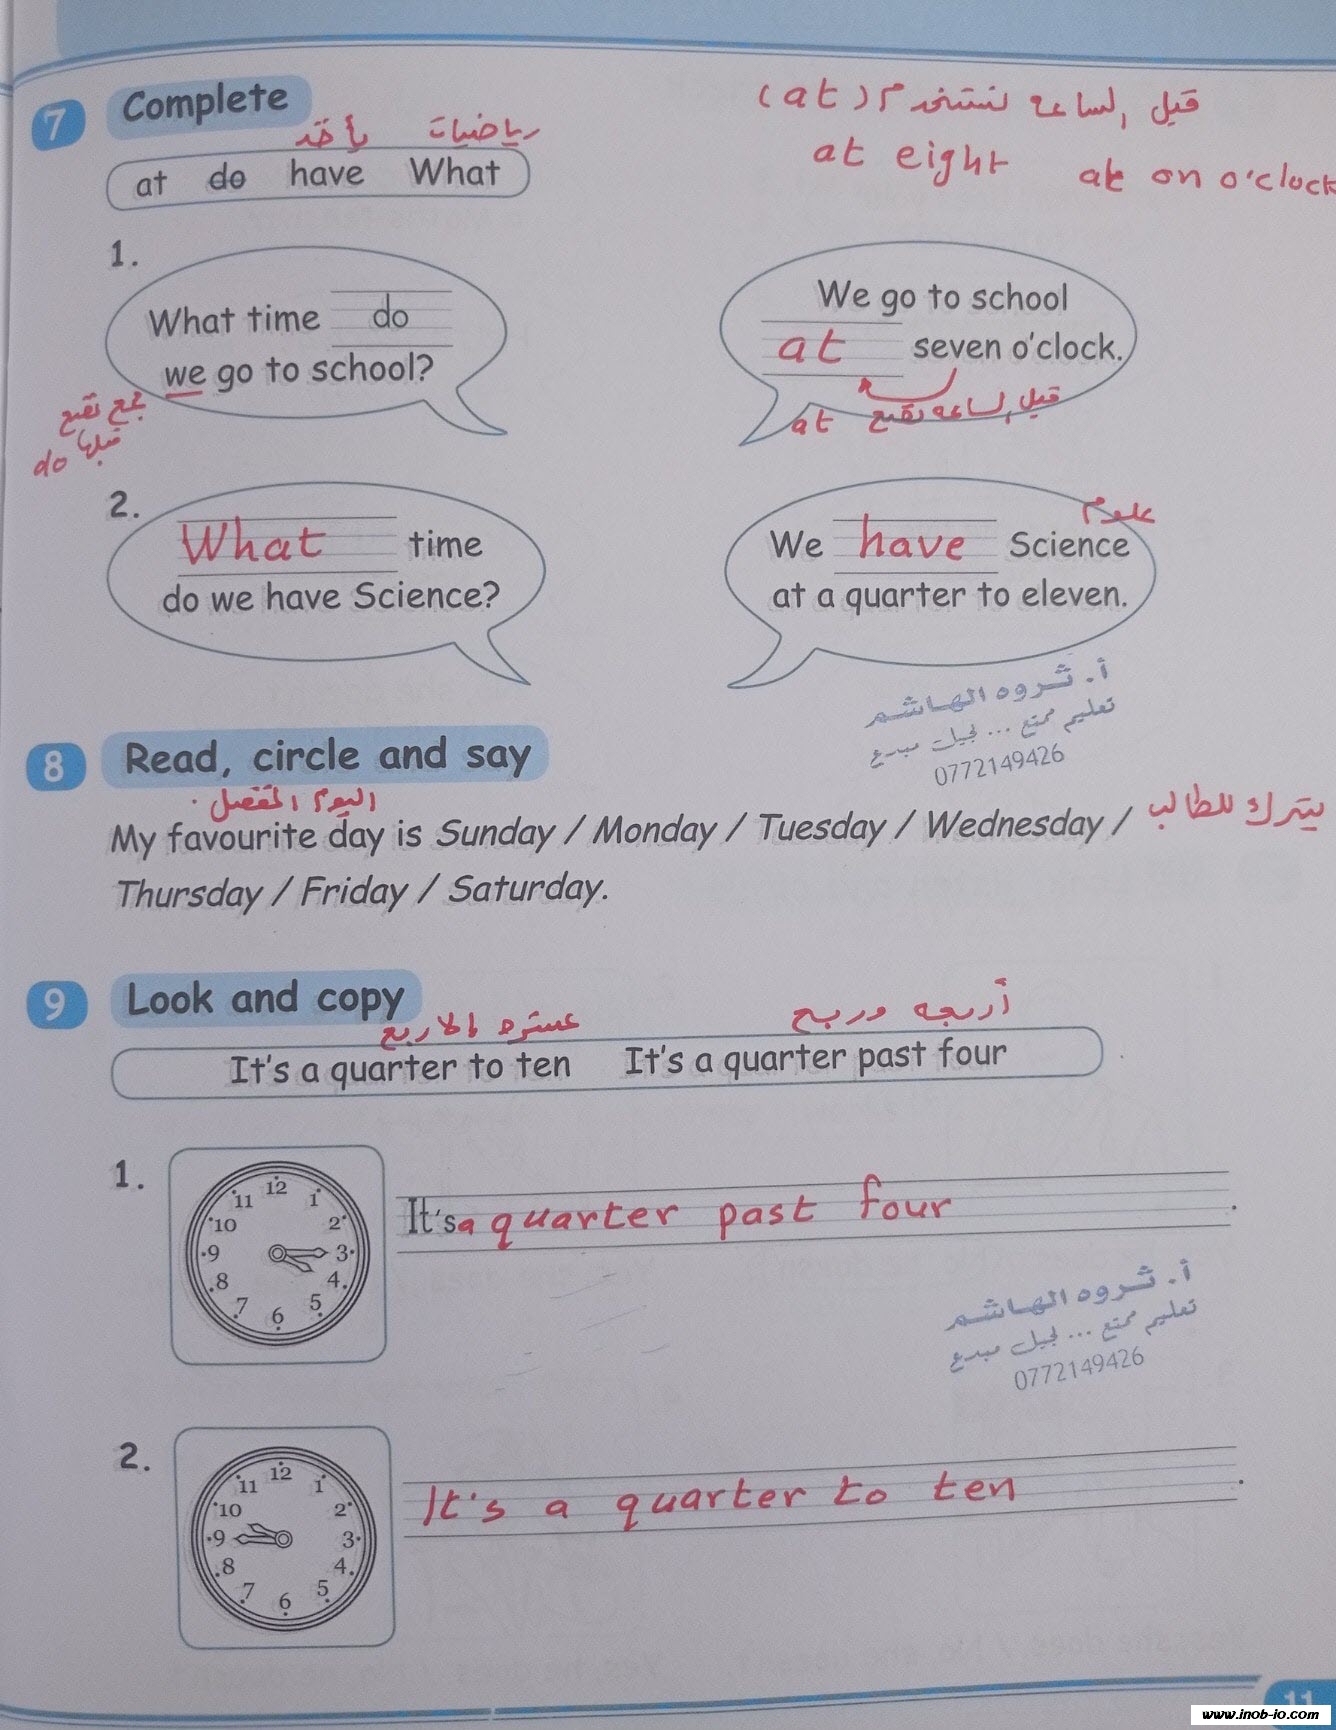 7 Complete
قبل الساعة نستخدم (at)
at eight at on o'clock
يأخذ رياضيات
at do have What
1.
What time do
we go to school?
جمع نضع
قبلها
do
We go to school
at seven o'clock.
قبل الساعة نضع at
2.
What time
do we have Science?
علوم
We have Science
at a quarter to eleven.
أ. ثروه الهاشم
تعليم ممتع ... لجيل مبدع
0772149426
8 Read, circle and say
اليوم المفضل
My favourite day is Sunday / Monday / Tuesday / Wednesday / يترك للطالب
Thursday / Friday / Saturday.
9 Look and copy
عشره الا ربع أربعه وربع
It's a quarter to ten It's a quarter past four
1.
12 1 2 3 4 5 6 7 8 9 10 11
It's a quarter past four.
أ. ثروه الهاشم
تعليم ممتع ... لجيل مبدع
0772149426
2.
12 1 2 3 4 5 6 7 8 9 10 11
It's a quarter to ten.
11
www.inob-jo.com